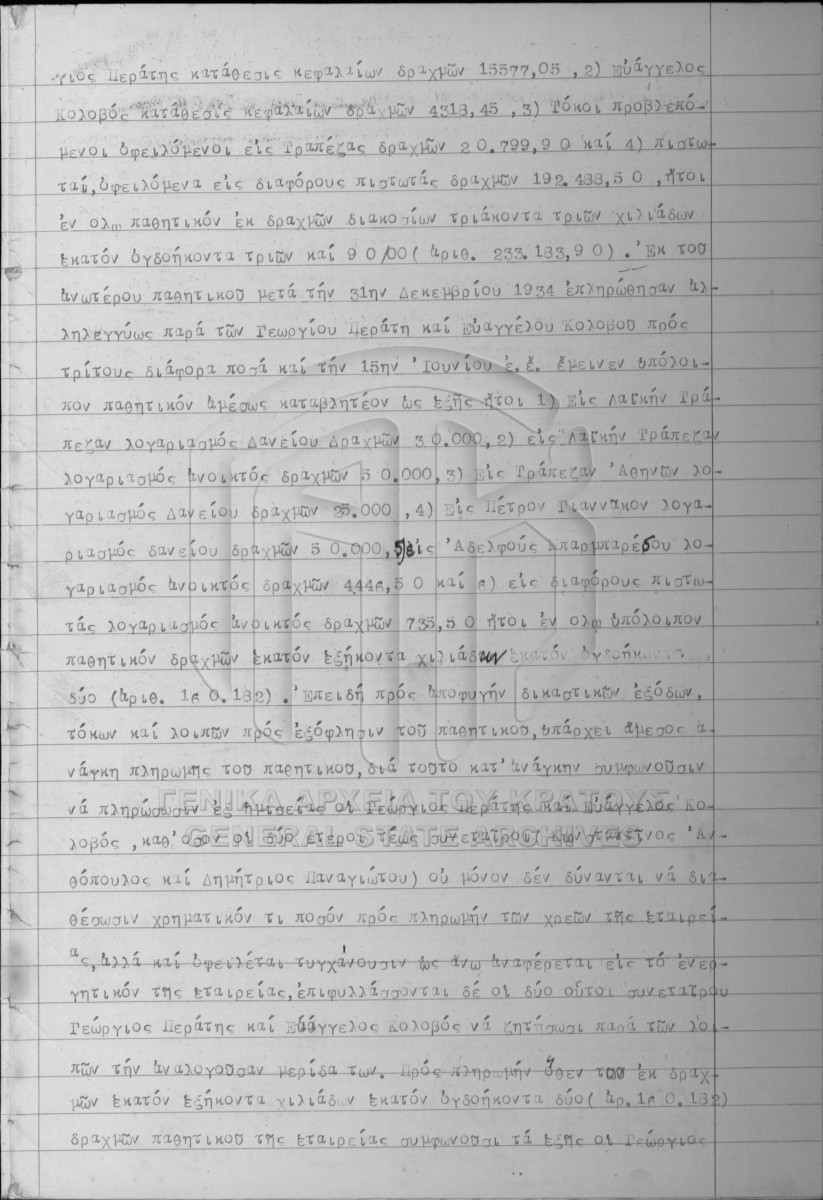 γιος Περάτης κατάθεσις κεφαλαίων δραχμῶν 15577,05 , 2) Εὐάγγελος
Κολοβός κατάθεσις κεφαλαίων δραχμῶν 4318,45 , 3) Τόκοι προβλεπό-
μενοι ὀφειλόμενοι εἰς Τραπέζας δραχμῶν 20.799,90 καί 4) πιστω-
ταί, ὀφειλόμενα εἰς διαφόρους πιστωτάς δραχμῶν 192.488,50 , ἤτοι
ἐν ολω παθητικόν ἐκ δραχμῶν διακοσίων τριάκοντα τριῶν χιλιάδων
ἑκατόν ὀγδοήκοντα τριῶν καί 90/00 ( ἀριθ. 233.183,90) . Ἐκ τοῦ
ἀνωτέρου παθητικοῦ μετά τήν 31ην Δεκεμβρίου 1934 ἐπληρώθησαν ἀλ-
ληλεγγύως παρά τῶν Γεωργίου Περάτη καί Εὐαγγέλου Κολοβοῦ πρός
τρίτους διάφορα ποσά καί τήν 15ην Ἰουνίου ἐ.ἔ. ἔμεινεν ὑπόλοι-
πον παθητικόν ἀμέσως καταβλητέον ὡς ἑξῆς ἤτοι 1) Εἰς Λαϊκήν Τρά-
πεζαν λογαριασμός Δανείου Δραχμῶν 30.000, 2) εἰς Λαϊκήν Τράπεζαν
λογαριασμός ἀνοικτός δραχμῶν 50.000, 3) Εἰς Τράπεζαν Ἀθηνῶν λο-
γαριασμός Δανείου δραχμῶν 25.000 , 4) Εἰς Πέτρον Γιαννακον λογα-
ριασμός δανείου δραχμῶν 50.000, 5)εἰς Ἀδελφούς Μπαρμπαρέσου λο-
γαριασμός ἀνοικτός δραχμῶν 4446,50 καί 6) εἰς διαφόρους πιστω-
τάς λογαριασμός ἀνοικτός δραχμῶν 735,50 ἤτοι ἐν ολω ὑπόλοιπον
παθητικόν δραχμῶν ἑκατόν ἑξήκοντα χιλιάδων ἑκατόν ὀγδοήκοντα
δύο (ἀριθ. 160.182) . Ἐπειδή πρός ἀποφυγήν δικαστικῶν ἐξόδων,
τόκων καί λοιπῶν πρός ἐξόφλησιν τοῦ παθητικοῦ, ὑπάρχει ἄμεσος ἀ-
νάγκη πληρωμῆς τοῦ παθητικοῦ, διά τοῦτο κατ' ἀνάγκην συμφωνοῦσιν
νά πληρώσωσιν ἐξ ἡμισείας οἱ Γεώργιος Περάτης καί Εὐάγγελος Κο-
ΓΕΝΙΚΑ ΑΡΧΕΙΑ ΤΟΥ ΚΡΑΤΟΥΣ
λοβός , καθ' ὅσον οἱ δύο ἕτεροι τέως συνεταῖροι( Κωνσταντῖνος Ἀν-
GENERAL STATE ARCHIVES
θόπουλος καί Δημήτριος Παναγιώτου) οὐ μόνον δέν δύνανται νά δια-
θέσωσιν χρηματικόν τι ποσόν πρός πληρωμήν τῶν χρεῶν τῆς ἑταιρεί-
ας, ἀλλά καί ὀφειλέται τυγχάνουσιν ὡς ἄνω ἀναφέρεται εἰς τό ἐνερ-
γητικόν τῆς ἑταιρείας, ἐπιφυλλάσσονται δέ οἱ δύο οὗτοι συνεταῖροι
Γεώργιος Περάτης καί Εὐάγγελος Κολοβός νά ζητήσωσι παρά τῶν λοι-
πῶν τήν ἀναλογοῦσαν μερίδα των. Πρός πληρωμήν ὅθεν τοῦ ἐκ δραχ-
μῶν ἑκατόν ἑξήκοντα χιλιάδων ἑκατόν ὀγδοήκοντα δύο( ἀρ.160.182)
δραχμῶν παθητικοῦ τῆς ἑταιρείας συμφωνοῦσι τά ἑξῆς οἱ Γεώργιος